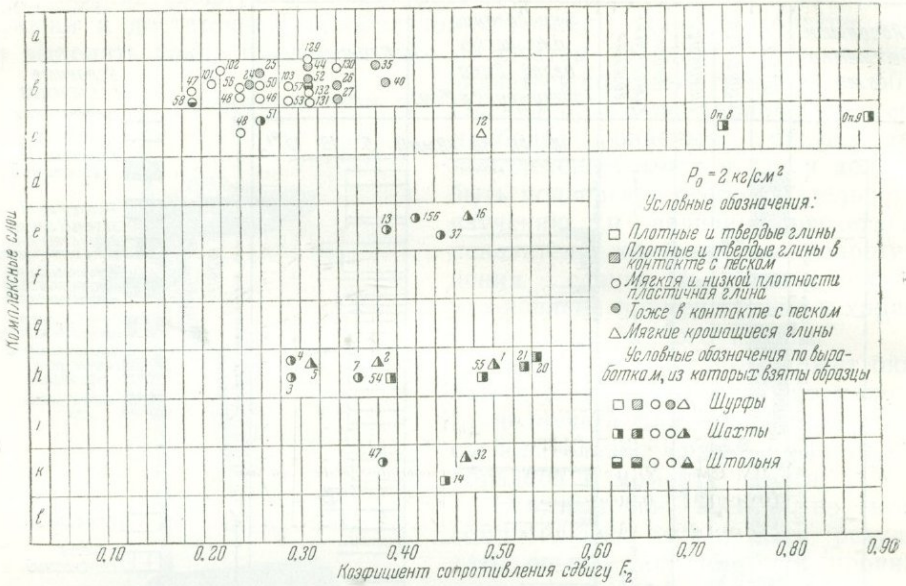 Комплексные слои
a
б
c
d
e
f
q
h
i
к
l
129
102
25
44
130
35
47
101
55
24
50
103
52
57
26
40
58
48
46
53
132
131
27
48
51
12
Оп.8
Оп.9
13
156
37
16
4
5
3
7
2
54
55
1
21
20
47
32
14
P₀ = 2 кг/см²
Условные обозначения:
Плотные и твердые глины
Плотные и твердые глины в
контакте с песком
Мягкая и низкой плотности
пластичная глина
Тоже в контакте с песком
Мягкие крошащиеся глины
Условные обозначения по выра-
боткам, из которых взяты образцы
Шурфы
Шахты
Штольня
0,10 0,20 0,30 0,40 0,50 0,60 0,70 0,80 0,90
Коэфициент сопротивления сдвигу F₂